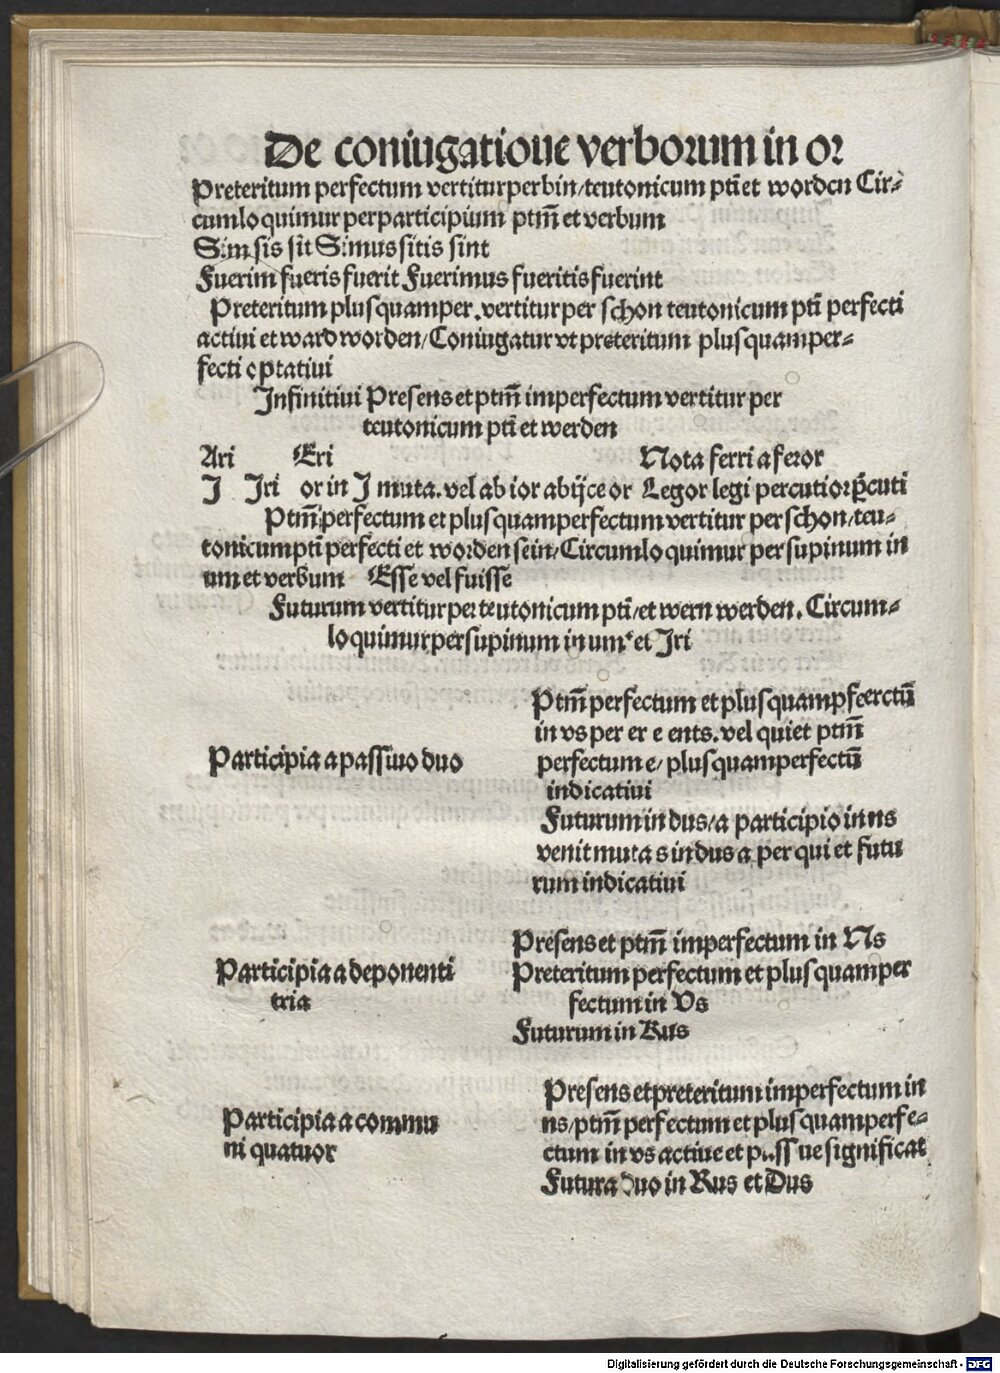 De coniugatioue verborum in or
Preteritum perfectum vertitur per bin/teutonicum pti et worden Cir-
cumloquimur per participium ptm̄ et verbum
Sim sis sit Simus sitis sint
Fuerim fueris fuerit Fuerimus fueritis fuerint
Preteritum plusquamper. vertitur per schon teutonicum pti perfecti
actiui et ward worden/Coniugatur vt preteritum plusquamper-
fecti optatiui
Infinitiui Presens et ptm̄ imperfectum vertitur per
teutonicum pti et werden
Ari Eri Nota ferri a feror
I Iri or in I muta. vel ab ior abijce or Legor legi percutior p̄cuti
Ptm̄ perfectum et plusquamperfectum vertitur per schon/teu-
tonicum pti perfecti et worden sein/Circumloquimur per supinum in
um et verbum Esse vel fuisse
Futurum vertitur per teutonicum pti/et wern werden. Circum-
loquimur per supinum in um. et Iri
Ptm̄ perfectum et plusquampfeerctū
in vs per er e ents. vel qui et ptm̄
Participia a passiuo duo perfectum e/ plusquamperfectū
indicatiui
Futurum in dus/a participio in ns
venit muta s in dus a per qui et futu
rum indicatiui
Presens et ptm̄ imperfectum in Ns
Participia a deponenti Preteritum perfectum et plusquamper
tria fectum in Vs
Futurum in Rus
Presens et preteritum imperfectum in
Participia a commu ns/ptm̄ perfectum et plusquamperfe-
ni quatuor ctum in vs actiue et passiue significat
Futura duo in Rus et Dus
Digitalisierung gefördert durch die Deutsche Forschungsgemeinschaft - DFG